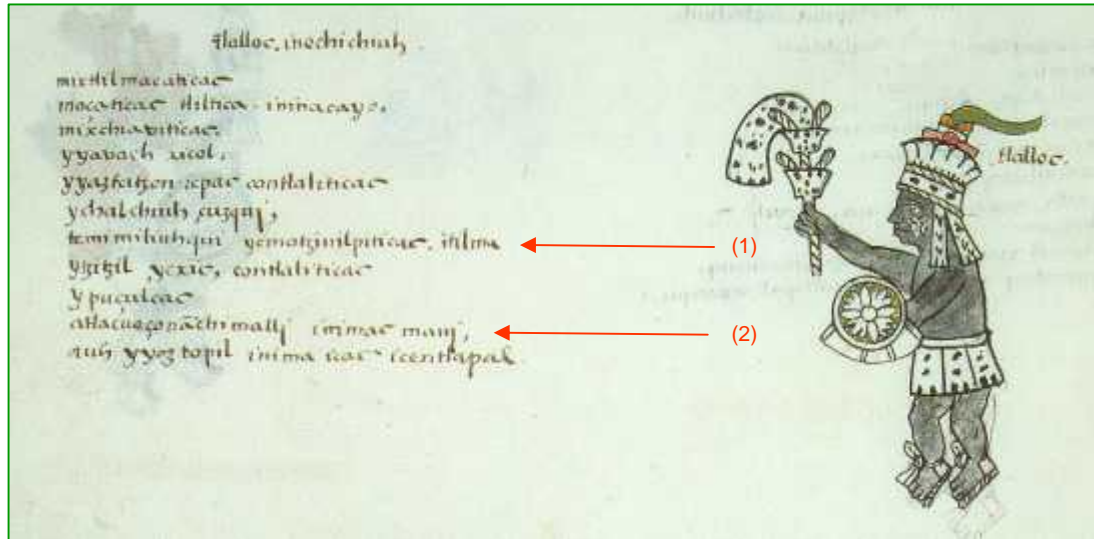 tlalloc, inechichiuh.
mixtlilmacaticac
moçaticac tliltica ininacayo,
mixchiaviticac
yyavach xicol,
yyaztatzon icpac contlaliticac
ychalchiuh cuzquj,
tlalloc.
temimiluhqui ycmotzinilpiticac, itilma (1)
ytzitzil ycxic, contlaliticac
ypuçulcac
atlacueçonāchimallj inimac manj, (2)
auh yyoztopil inima icac icentlapal